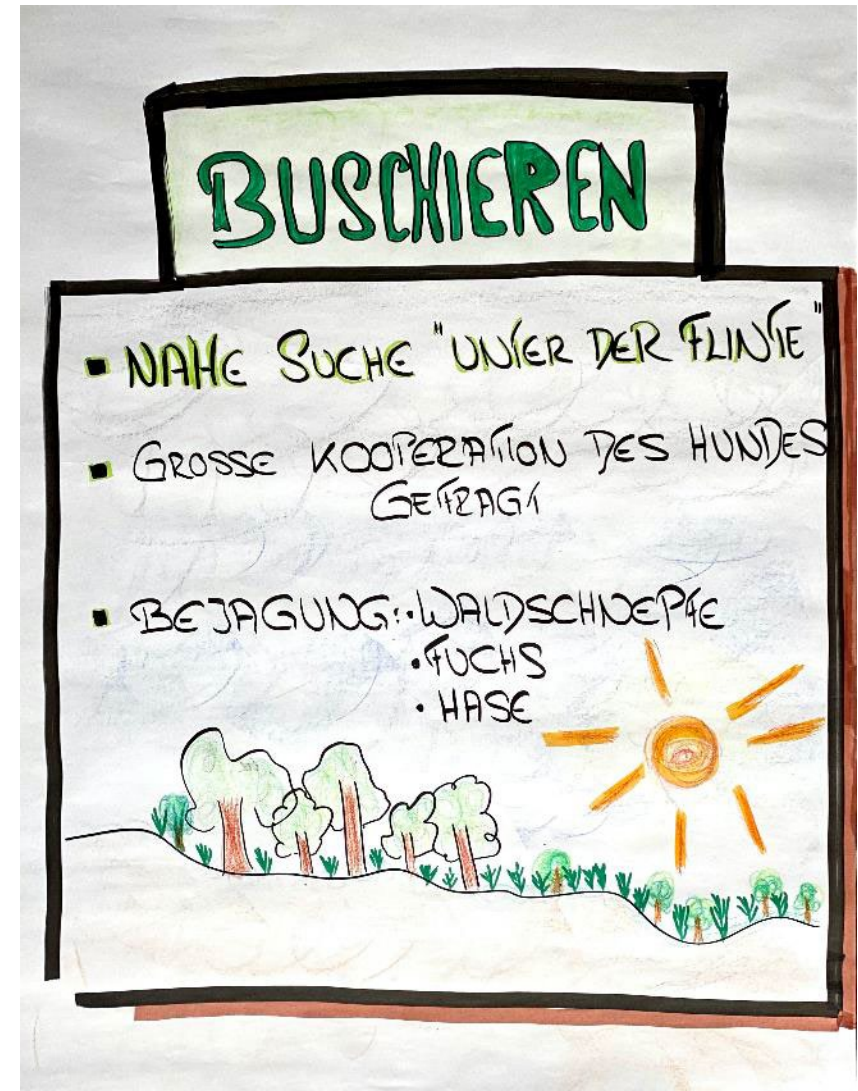 BUSCHIEREN
▪ NAHE SUCHE "UNTER DER FLINTE"
▪ GROSSE KOOPERATION DES HUNDES
GEFRAGT
▪ BEJAGUNG: • WALDSCHNEPFE
• FUCHS
• HASE